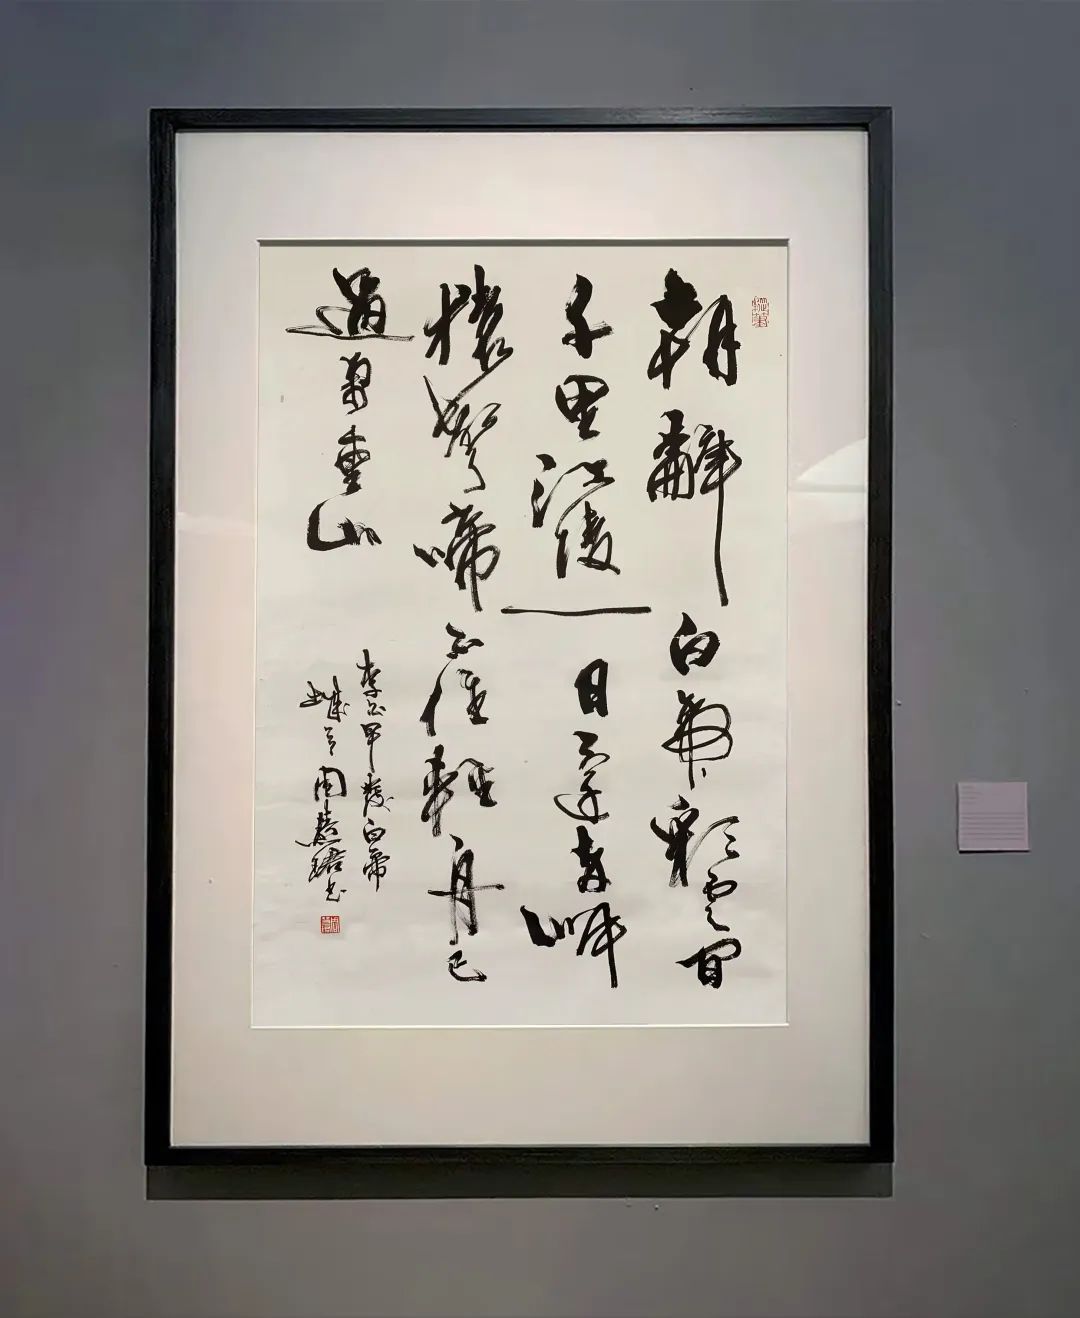 朝辭白帝彩雲間
千里江陵一日還两岸
猿聲啼不住輕舟已
過萬重山
李白早發白帝
城 周慧珺书